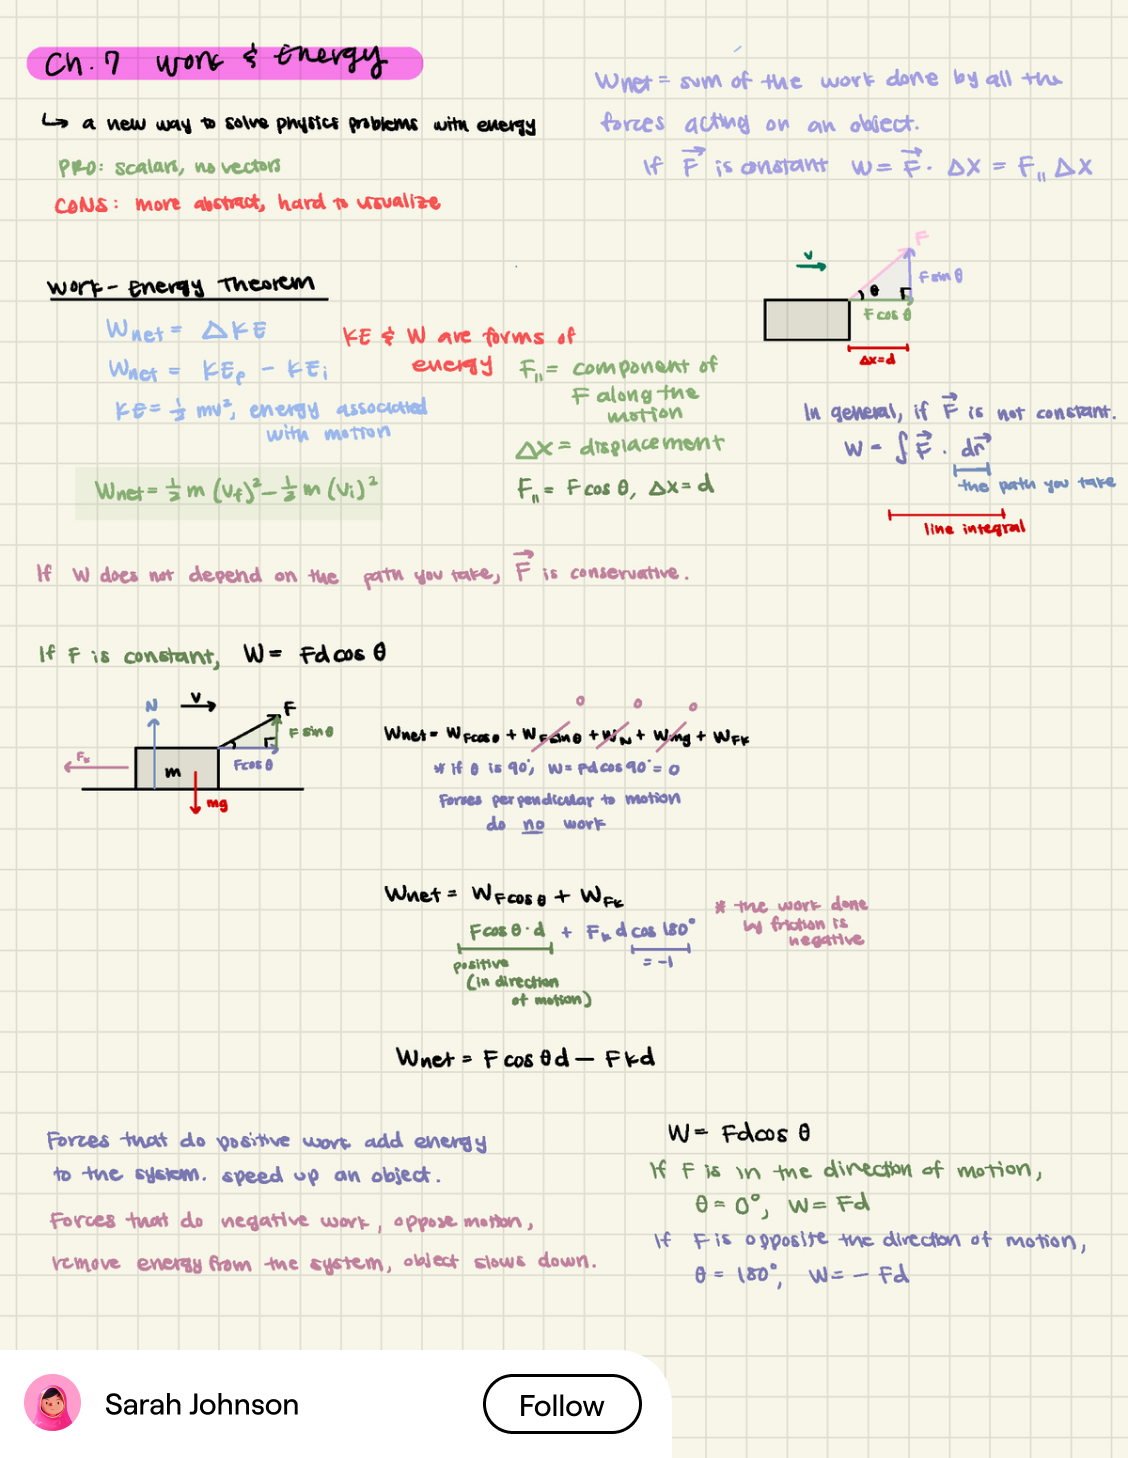 Ch. 7 Work & Energy
↳ a new way to solve physics problems with energy
PRO: scalars, no vectors
CONS: more abstract, hard to visualize
Wnet = sum of the work done by all the
forces acting on an object.
If F⃗ is constant W = F⃗ · Δx = F₁₁ Δx
v
F
F sin θ
θ
F cos θ
Δx = d
Work - Energy Theorem
Wnet = ΔKE
Wnet = KEf - KEi
KE = ½ mv², energy associated
with motion
Wnet = ½ m (vf)² - ½ m (vi)²
KE & W are forms of
energy
F₁₁ = component of
F along the
motion
Δx = displacement
F₁₁ = F cos θ, Δx = d
In general, if F⃗ is not constant.
W = ∫ F⃗ · dr⃗
the path you take
line integral
If W does not depend on the path you take, F⃗ is conservative.
If F is constant, W = Fd cos θ
N
v
F
F sin θ
Fk
F cos θ
m
mg
0 0 0
Wnet = WFcosθ + WFsinθ + WN + Wmg + WFk
* if θ is 90°, W = Fd cos 90° = 0
Forces perpendicular to motion
do no work
Wnet = WFcosθ + WFk
F cos θ · d + Fk d cos 180°
= -1
positive
(in direction
of motion)
* the work done
by friction is
negative
Wnet = F cos θ d - Fkd
Forces that do positive work add energy
to the system. speed up an object.
Forces that do negative work, oppose motion,
remove energy from the system, object slows down.
W = Fd cos θ
If F is in the direction of motion,
θ = 0°, W = Fd
If F is opposite the direction of motion,
θ = 180°, W = - Fd
Sarah Johnson
Follow